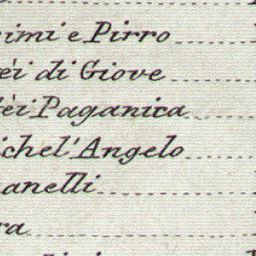 simi e Pirro
èi di Giove
èi Paganica
chel' Angelo
anelli
ra